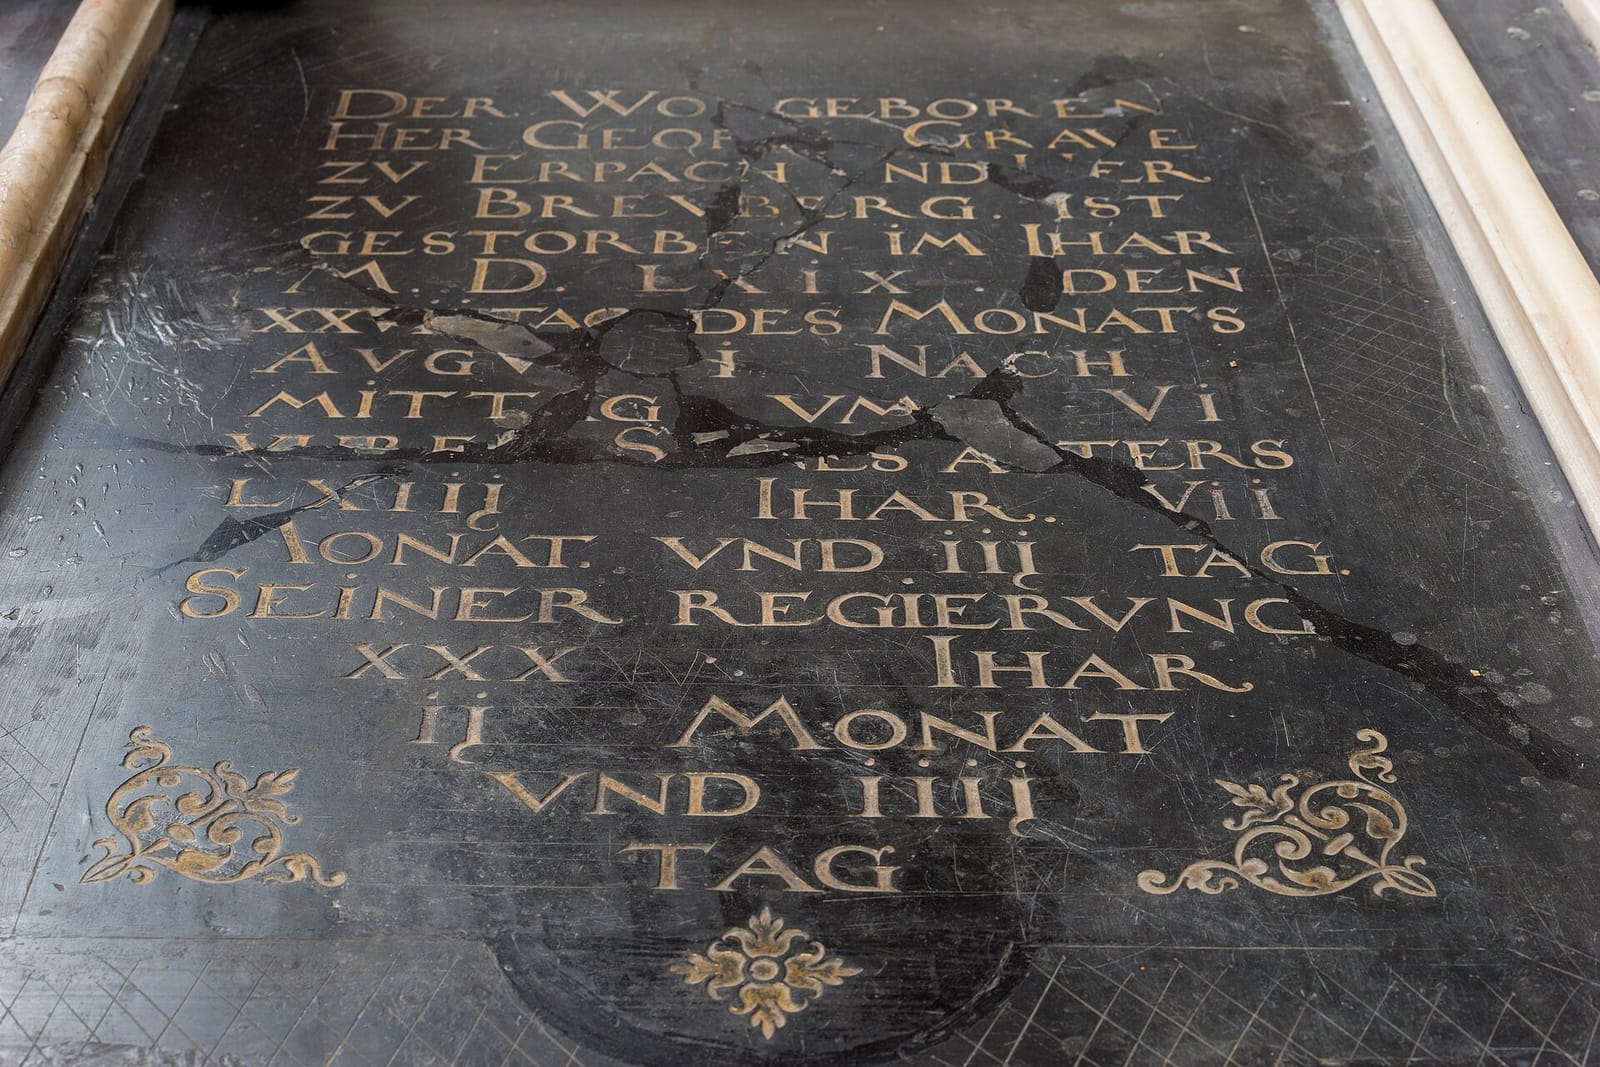 DER. WOLGEBOREN
HER GEORG GRAVE
ZV ERPACH VND HER
ZV BREVBERG. IST
GESTORBEN IM IHAR
M D. LXIX. DEN
TAG DES MONATS
AVGVSTI NACH
MITTAG VM VI
VHREN SEINES ALTERS
LXIIIJ IHAR. VII
MONAT. VND IIJ TAG.
SEINER REGIERVNG
XXX. IHAR
IJ MONAT
VND IIIJ
TAG